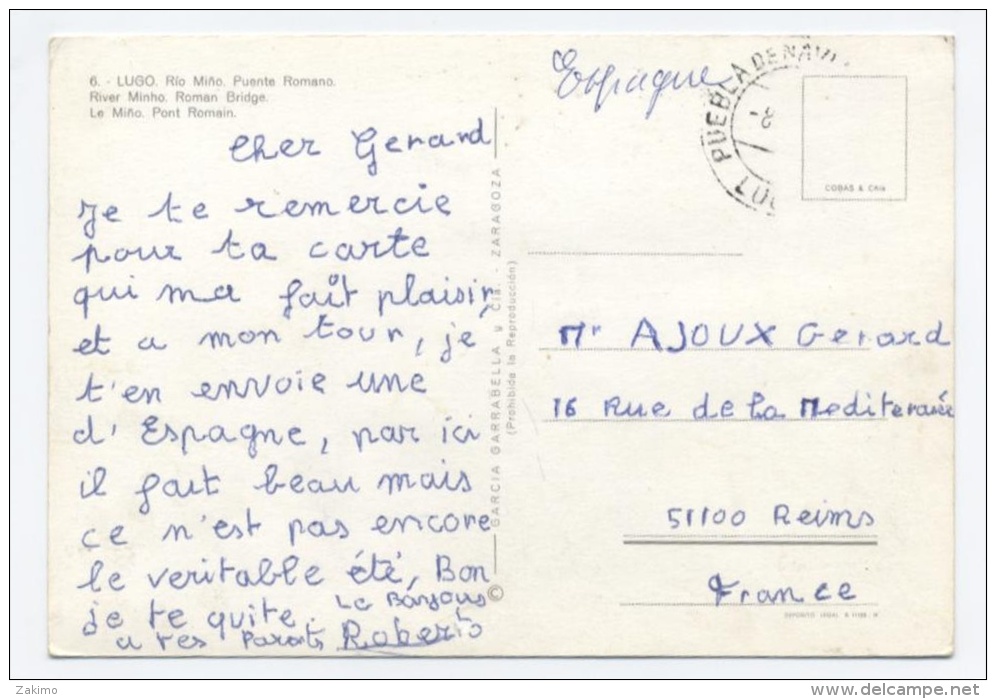 6. - LUGO. Río Miño. Puente Romano.
River Minho. Roman Bridge.
Le Miño. Pont Romain.
Cher Gerard
Je te remercie
pour ta carte
qui ma fait plaisir,
et a mon tour, je
t'en envoie une
d'Espagne, par ici
il fait beau mais
ce n'est pas encore
le veritable été, Bon
je te quite.
Le Bonjour
a tes Parents
Roberto
GARCIA GARRABELLA y Cía. - ZARAGOZA
(Prohibida la Reproducción)
©
Espagne
PUEBLA DE NAVI
8
COBAS & Cía
Mr AJOUX Gerard
16 Rue de la Mediteranée
51100 Reims
France
DEPOSITO LEGAL B.
Zakimo
www.delcampe.net